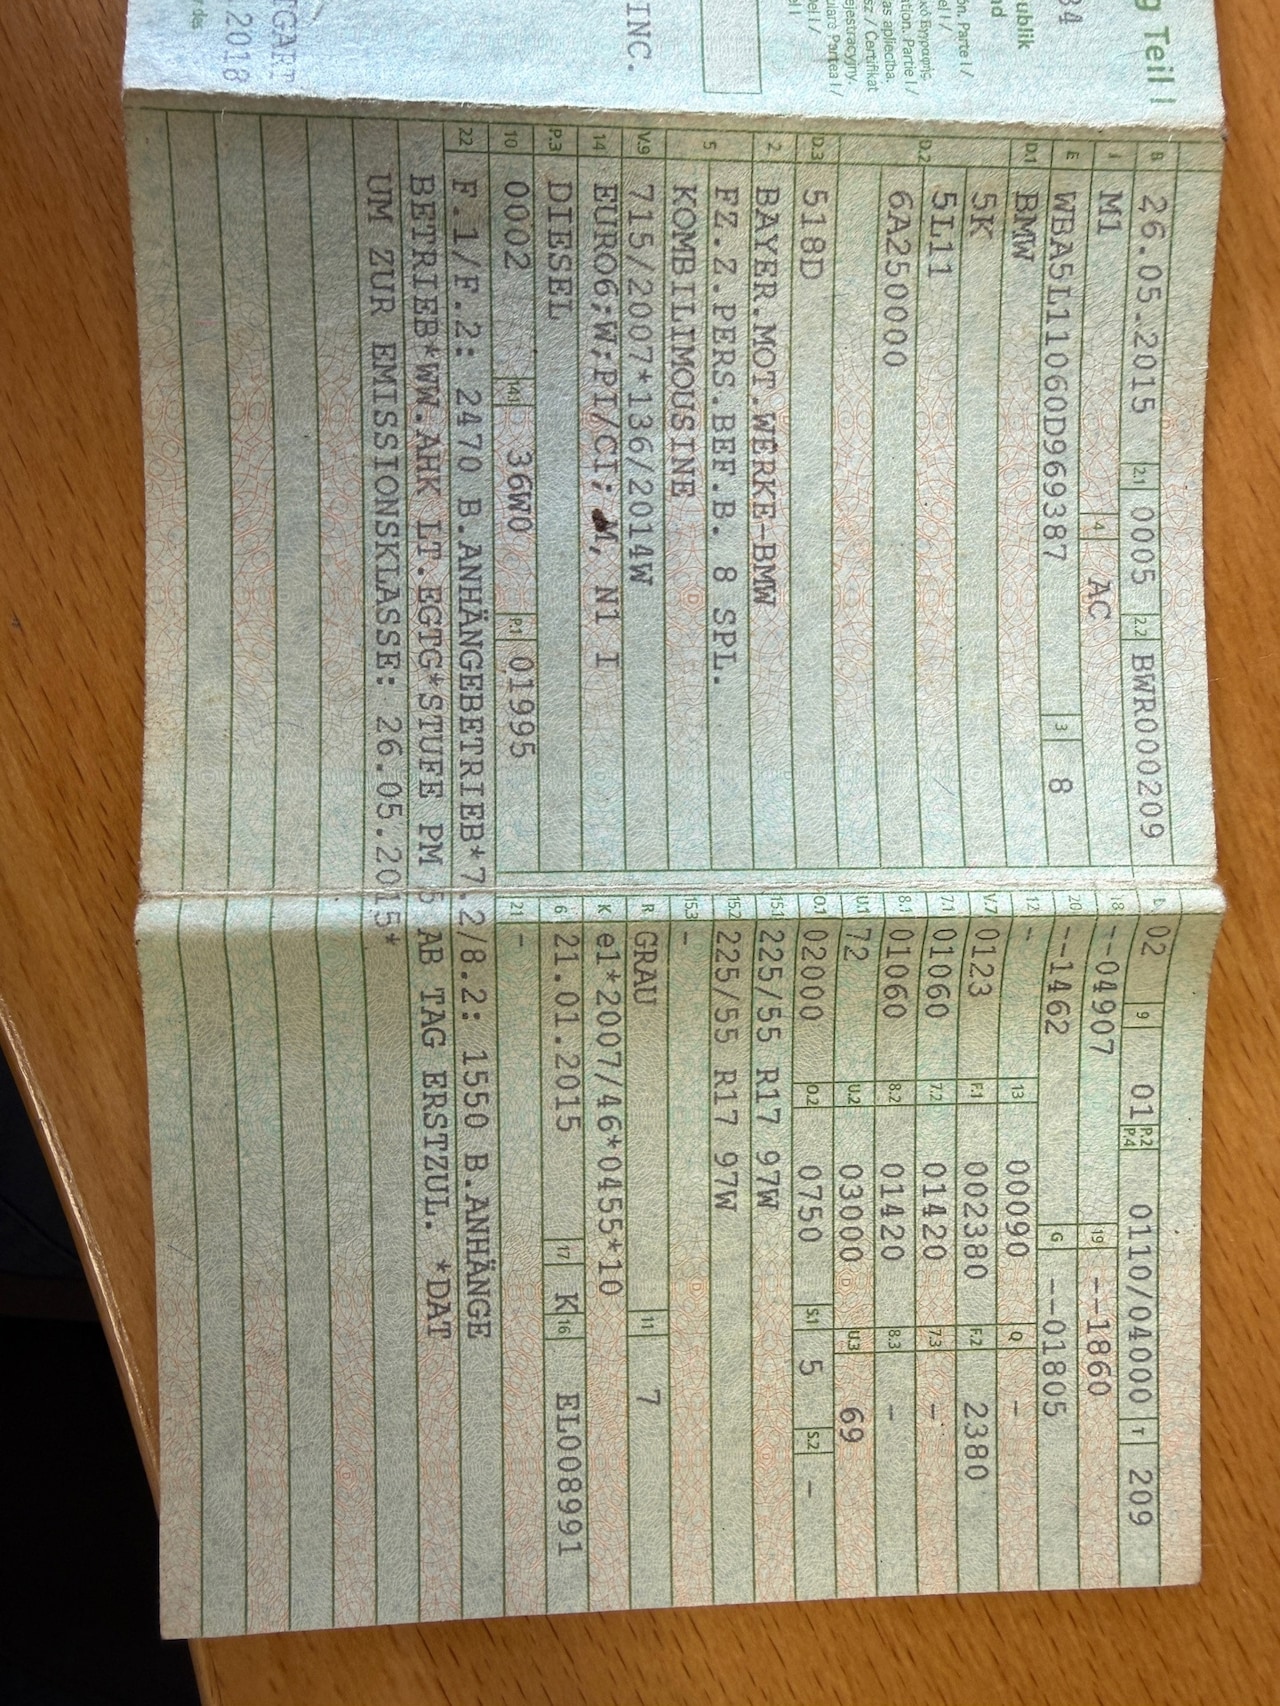 g Teil I
ublik
nd
on. Parte I /
el I /
ation. Partie I /
as apliecība.
sz / Certifikat
ejestracyjny.
ulare Partea I /
el I /
34
INC.
TGART
.2018
B 26.05.2015 2.1 0005 2.2 BWR000209
J M1 4 AC
E WBA5L11060D969387 3 8
D.1 BMW
D.2 5K
5L11
6A250000
D.3 518D
2 BAYER.MOT.WERKE-BMW
5 FZ.Z.PERS.BEF.B. 8 SPL.
KOMBILIMOUSINE
V.9 715/2007*136/2014W
14 EURO6;W;PI/CI; M, N1 I
P.3 DIESEL
10 0002 14.1 36W0 P.1 01995
22 F.1/F.2: 2470 B.ANHÄNGEBETRIEB*7.2/8.2: 1550 B.ANHÄNGE
BETRIEB*WW.AHK LT.EGTG*STUFE PM 5 AB TAG ERSTZUL. *DAT
UM ZUR EMISSIONSKLASSE: 26.05.2015*
L 02 9 01 P.2 P.4 0110/04000 T 209
18 --04907 19 --1860
20 --1462 G --01805
12 - 13 00090 Q -
V.7 0123 F.1 002380 F.2 2380
7.1 01060 7.2 01420 7.3 -
8.1 01060 8.2 01420 8.3 -
U.1 72 U.2 03000 U.3 69
O.1 02000 O.2 0750 S.1 5 S.2 -
15.1 225/55 R17 97W
15.2 225/55 R17 97W
15.3 -
R GRAU 11 7
K e1*2007/46*0455*10
6 21.01.2015 17 K 16 EL008991
21 -